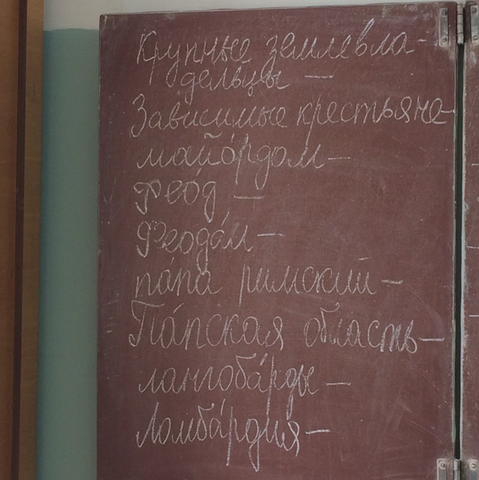 Крупные землевла-
дельцы —
Зависимые крестьяне-
майо́рдом —
феод —
Феода́л —
па́па римский —
Па́пская область —
лангоба́рды —
Ломба́рдия —